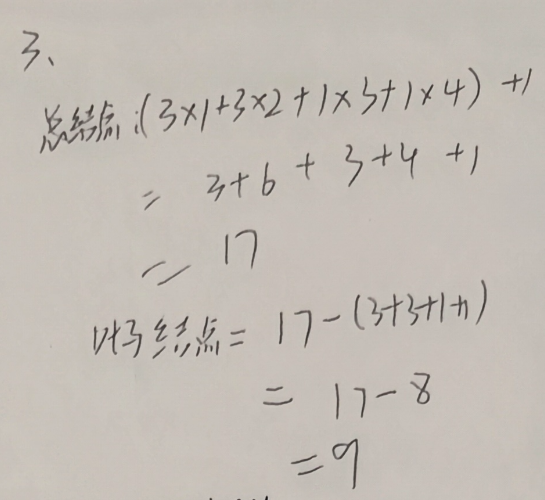 3、
总结点:(3×1+3×2+1×3+1×4)+1
= 3+6+3+4+1
= 17
叶子结点= 17-(3+3+1+1)
= 17-8
=9